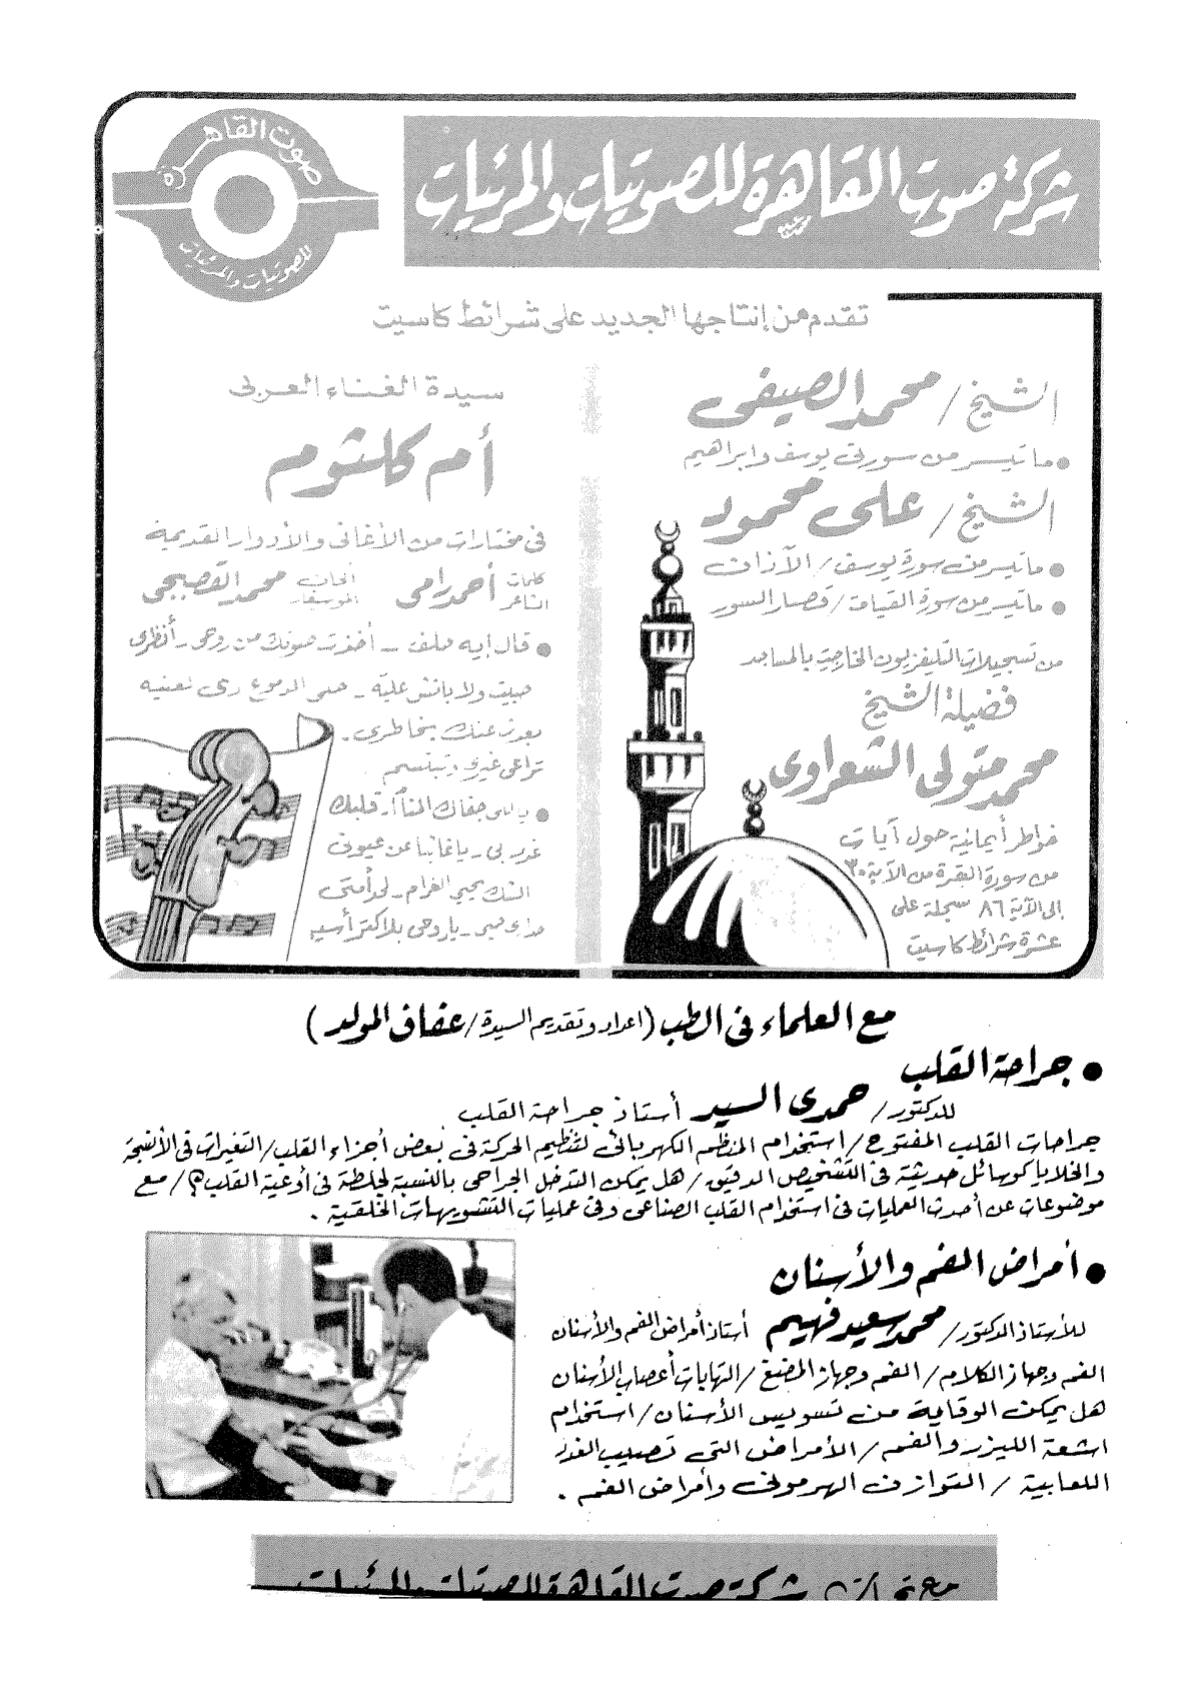 صوت القاهرة
للصوتيات والمرئيات
شركة صوت القاهرة للصوتيات والمرئيات
تقدم من إنتاجها الجديد على شرائط كاسيت
الشيخ / محمد الصيفى
• ما تيسر من سورتى يوسف وابراهيم
الشيخ / على محمود
• ما تيسر من سورة يوسف / الآذان
• ما تيسر من سورة القيامة / قصار السور
من تسجيلات التليفزيون الخارجية بالمساجد
فضيلة الشيخ
محمد متولى الشعراوى
خواطر أيمانية حول آيات
من سورة البقرة من الآية ٣٠
إلى الآية ٨٦ سجلة على
عشرة شرائط كاسيت
سيدة الغناء العربى
أم كلثوم
فى مختارات من الأغانى والأدوار القديمة
كلمات الشاعر أحمد رامى ألحان الموسيقار محمد القصبجى
• قال إيه حلف - أخذت صوتك من روحى - أنظرى
حبيت ولا بانش عليه - حتى الدموع
بعدت عنك بخاطرى .
تراعى غيرى وتبتسم
• ياللى جفاك المنام قلبك
غدر بى - يا غائبا عن عيونى
الشك يحيى الغرام -
- ياروحى بلا كتر أسيه
مع العلماء فى الطب (اعداد وتقديم السيدة / عفاف المولد )
• جراحة القلب
للدكتور / حمدى السيد أستاذ جراحة القلب
جراحات القلب المفتوح / استخدام المنظم الكهربائى لتنظيم الحركة فى بعض أجزاء القلب / التغيرات فى الأنسجة
والخلايا كوسائل حديثة فى التشخيص الدقيق / هل يمكن التدخل الجراحى بالنسبة لجلطة فى أوعية القلب ؟ / مع
موضوعات عن أحدث العمليات فى استخدام القلب الصناعى وفى عمليات التشوهات الخلقية .
• أمراض الفم والأسنان
للأستاذ الدكتور / محمد سعيد فهيم أستاذ أمراض الفم والأسنان
الفم وجهاز الكلام / الفم وجهاز المضغ / التهابات أعصاب الأسنان
هل يمكن الوقاية من تسويس الأسنان / استخدام
اشعة الليزر والفم / الأمراض التى تصيب الغدد
اللعابية / التوازن الهرمونى وأمراض الفم .
شركة صوت القاهرة للصوتيات والمرئيات